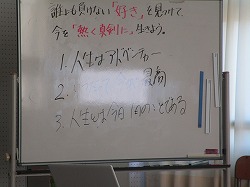 誰よりも負けない「好き」を見つけて
今を「熱く真剣に」生きよう。
1. 人生はアドベンチャー
2. 最高
3. 人生とは今日1日のことである